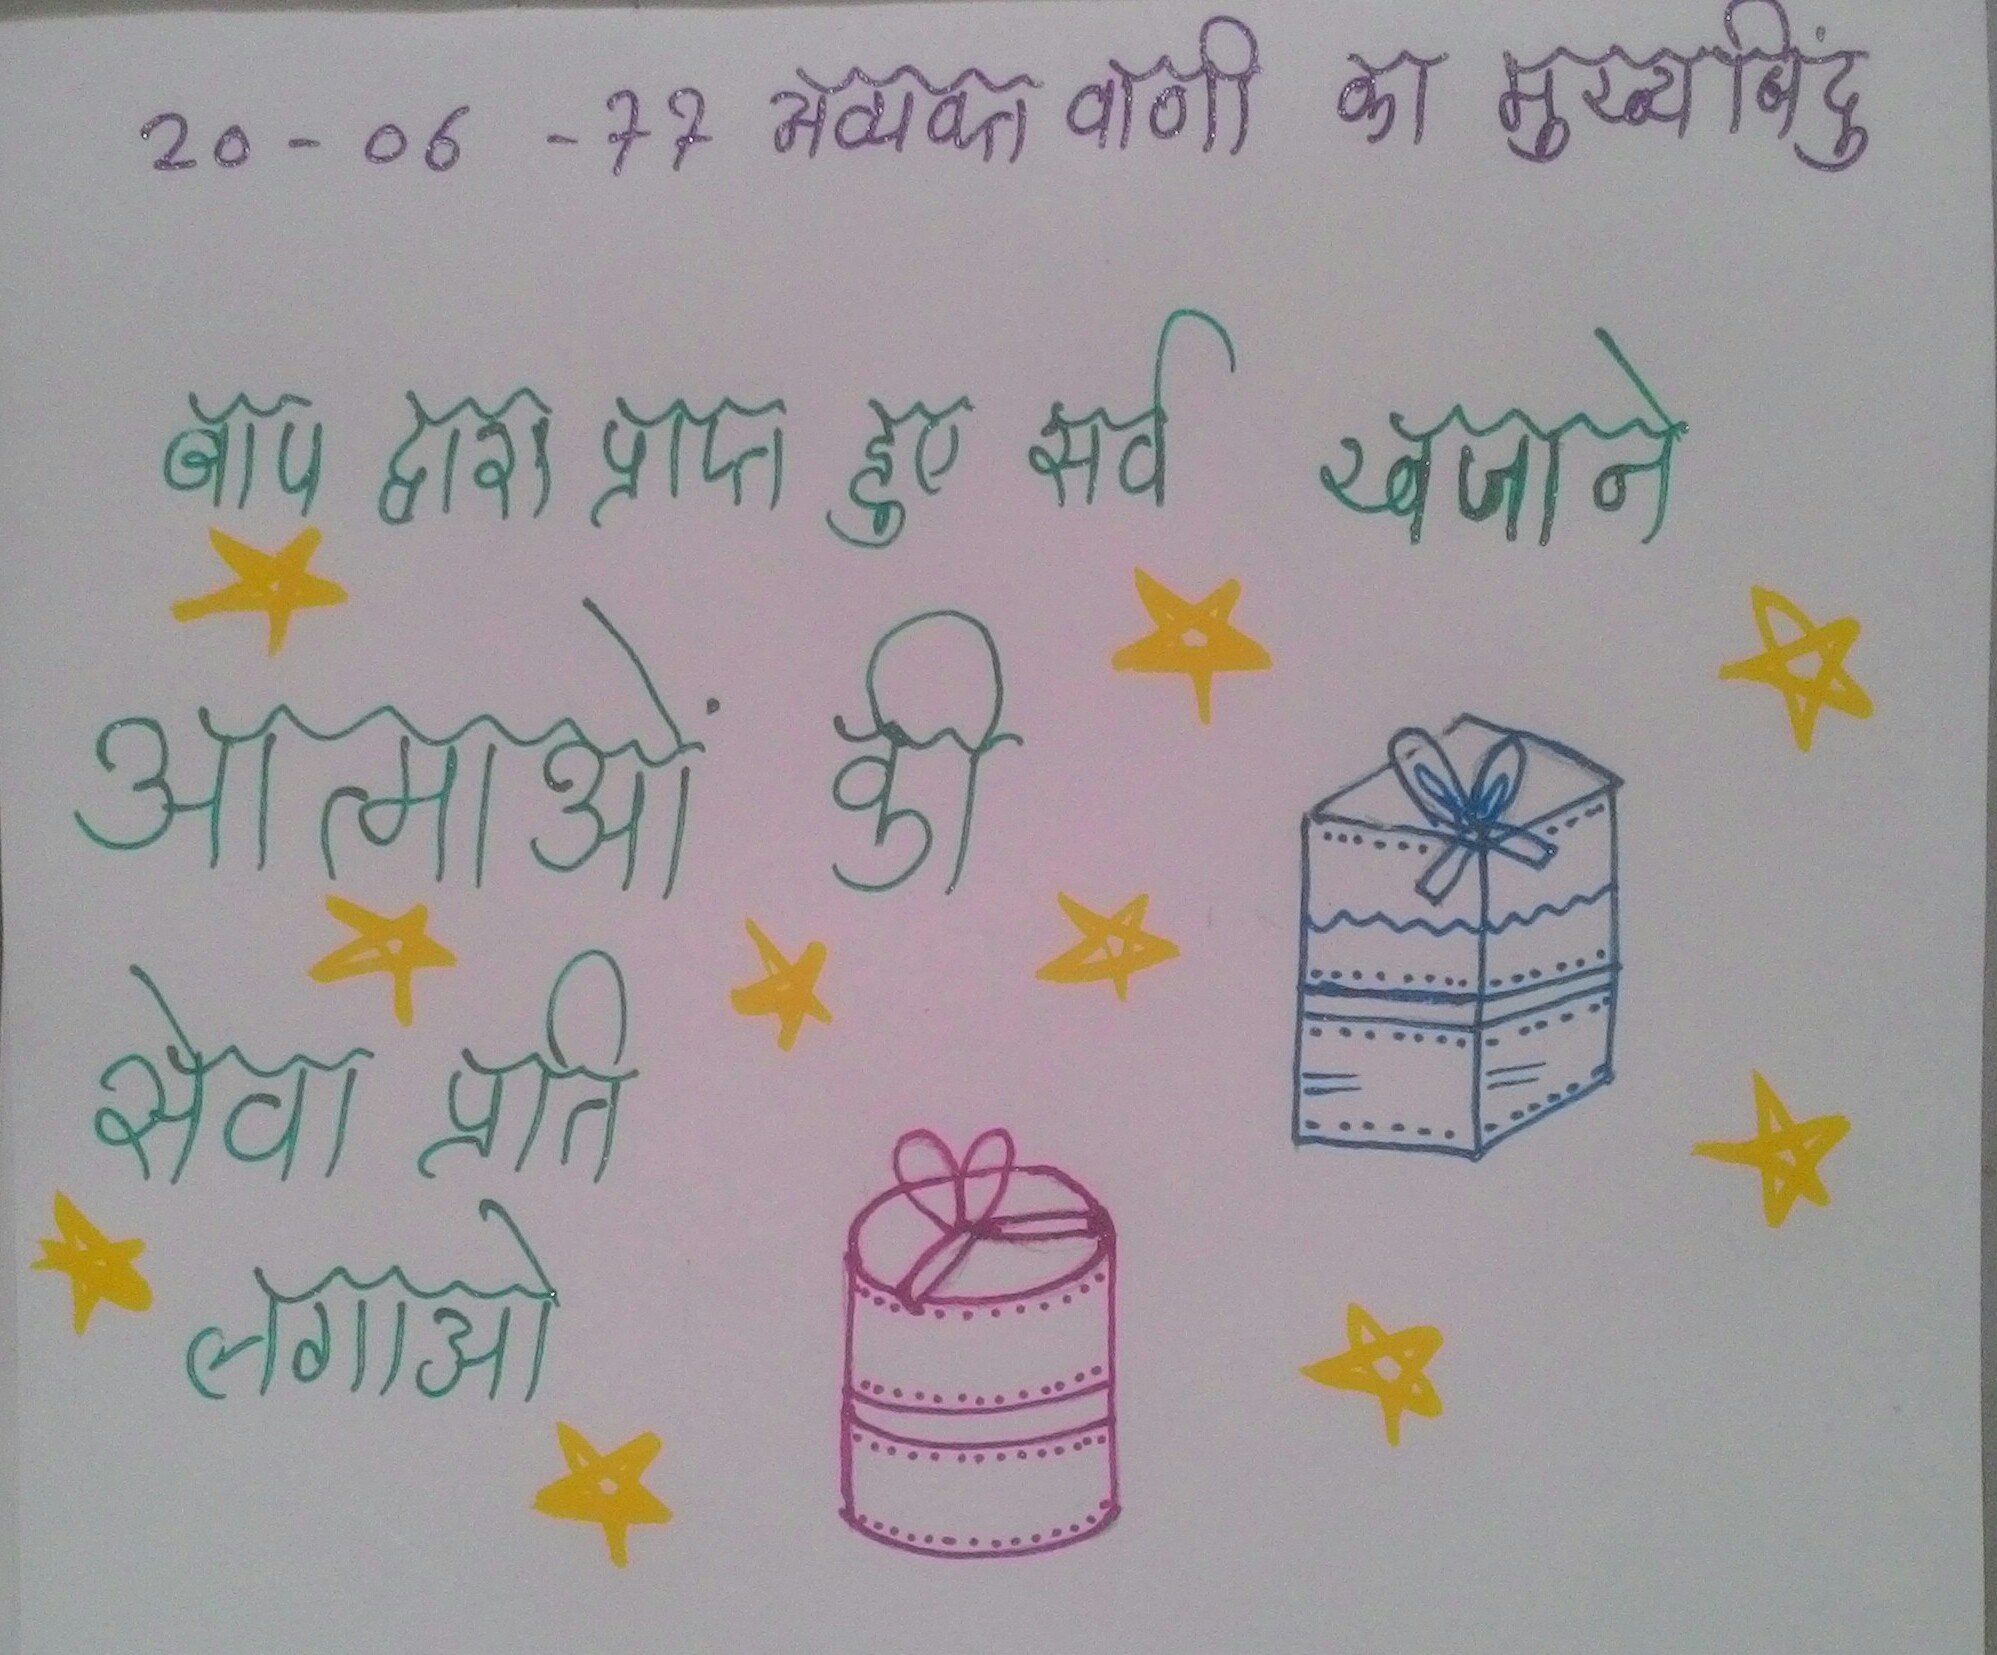 20-06-77 अव्यक्त वाणी का मुख्य बिंदु
बाप द्वारा प्राप्त हुए सर्व खजाने
आत्माओं की
सेवा प्रति
लगाओ